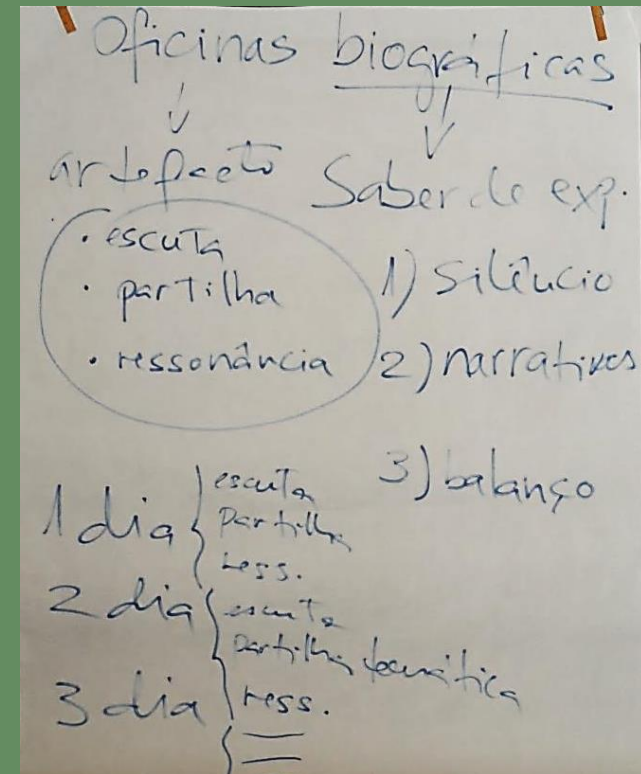 Oficinas biográficas
artefacto Saber de exp.
• escuta
• partilha
• ressonância
1) Silêncio
2) narrativas
3) balanço
1 dia { escuta
partilha
ress.
2 dia { escuta
partilha temática
ress.
3 dia {